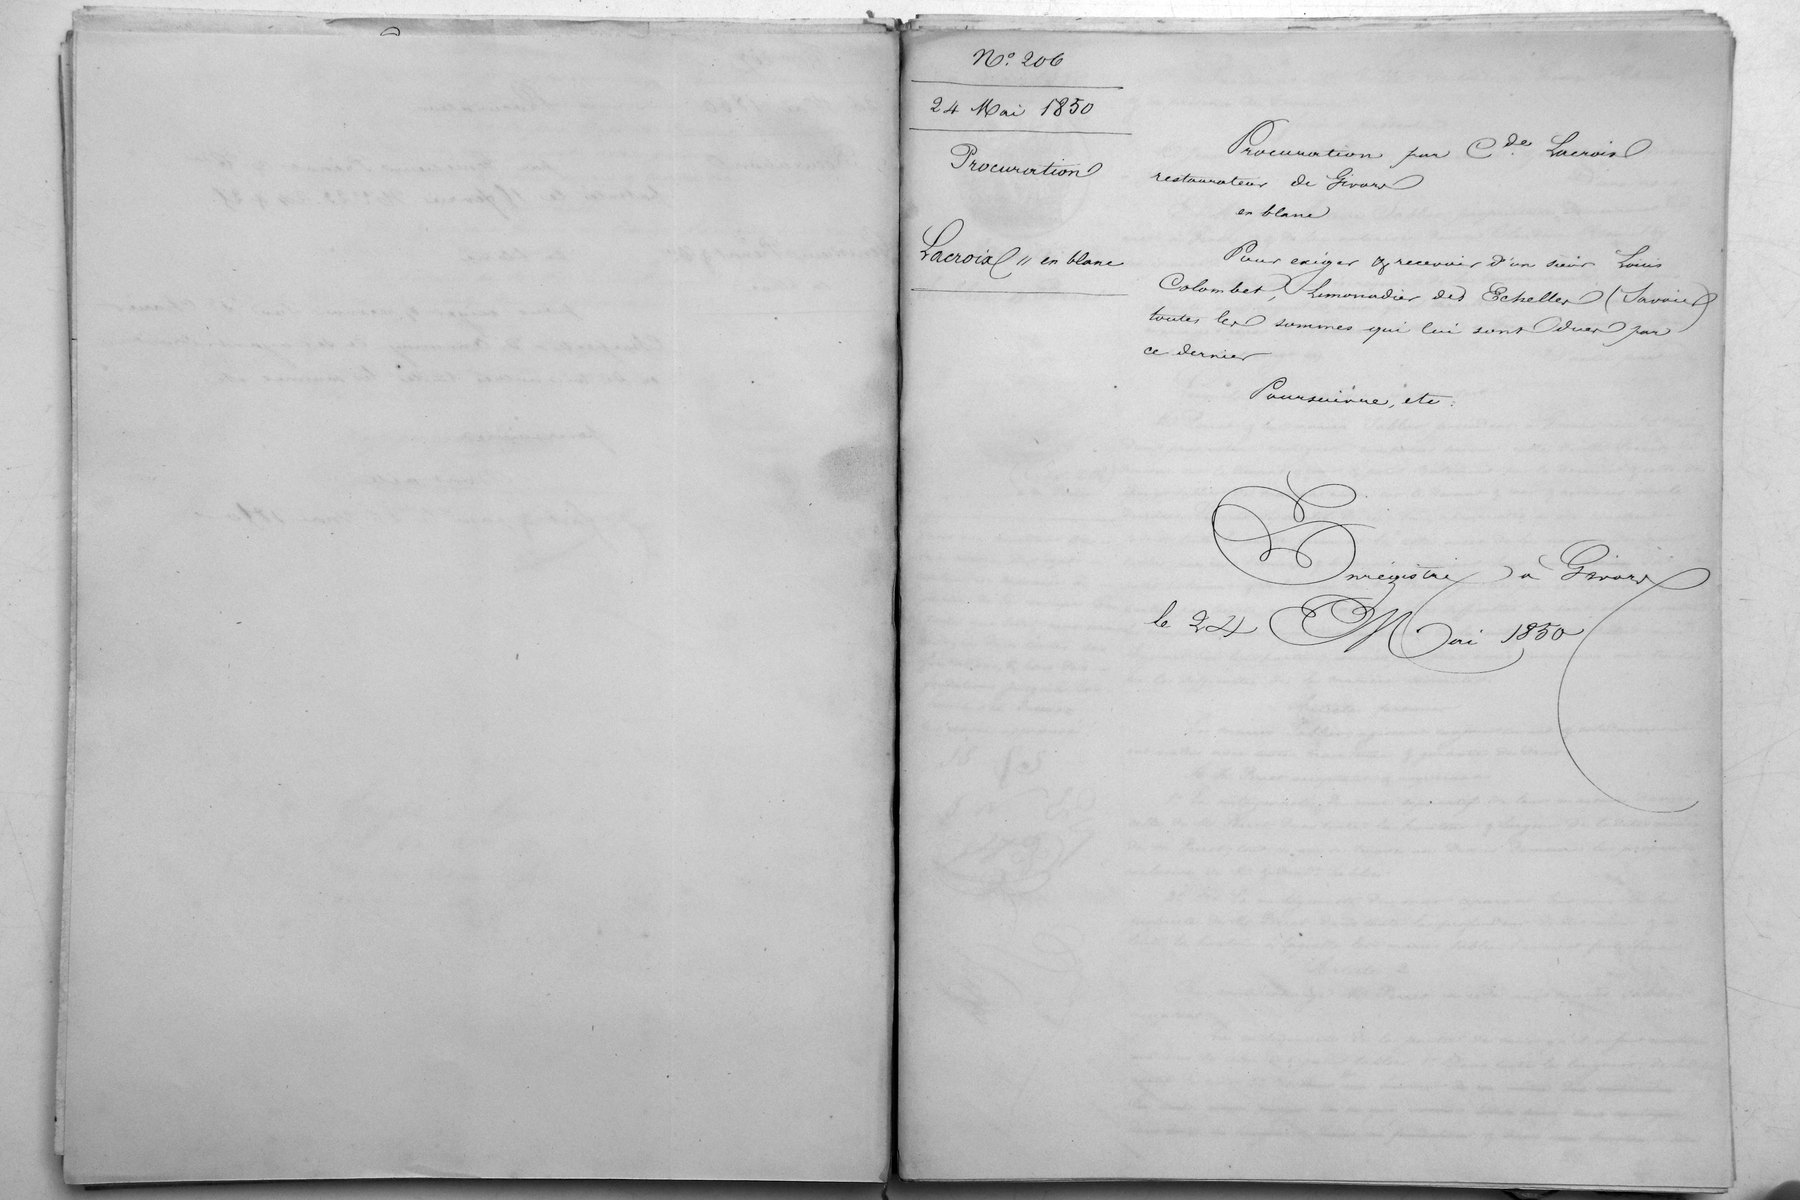 N.º 206
24 Mai 1850
Procuration
Lacroix // en blanc
Procuration par C.de Lacroix
restaurateur de Givors
en blanc
Pour exiger & recevoir d'un sieur Louis
Colombet, Limonadier des Echelles (Savoie)
toutes les sommes qui lui sont dues par
ce dernier
Poursuivre, etc.
Enregistré à Givors
le 24 Mai 1850